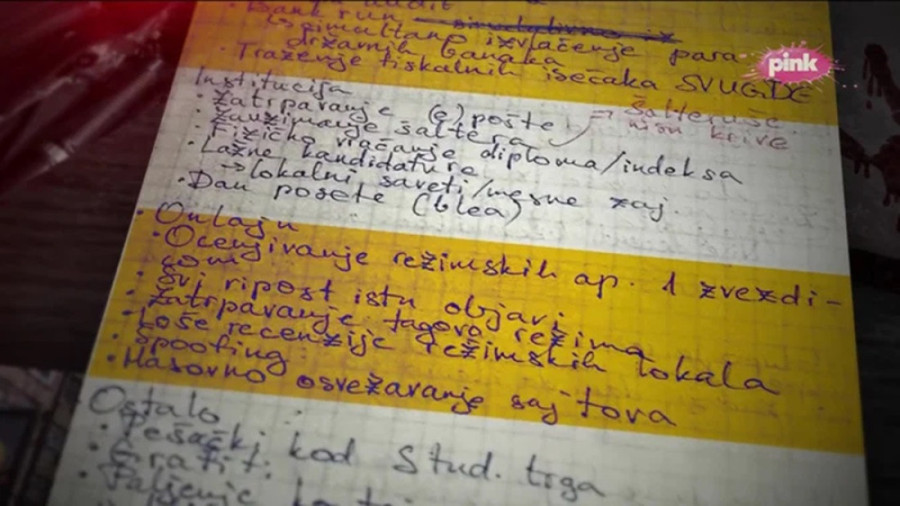 audit
• Bank run simultativno iz
↳ simultano izvlačenje para
državnih banaka
• Traženje fiskalnih isečaka SVUGDE
pink
Institucija
• Zatrpavanje (e) pošte
• Zauzimanje šaltera
→ Šalteruše
nisu krive
• Fizičko vraćanje diploma/indeksa
• Lažne kandidature
→ lokalni saveti/mesne zaj.
• Dan posete (blea)
• Onlajn
• Ocenjivanje režimskih ap. 1 zvezdi-
com
• Svi ripost istu objavu
• Zatrpavanje tagova režima
• Loše recenzije režimskih lokala
• Spoofing
• Masovno osvežavanje sajtova
• Ostalo
• Pešački kod Stud. trga
• Grafit.
• Paljenje